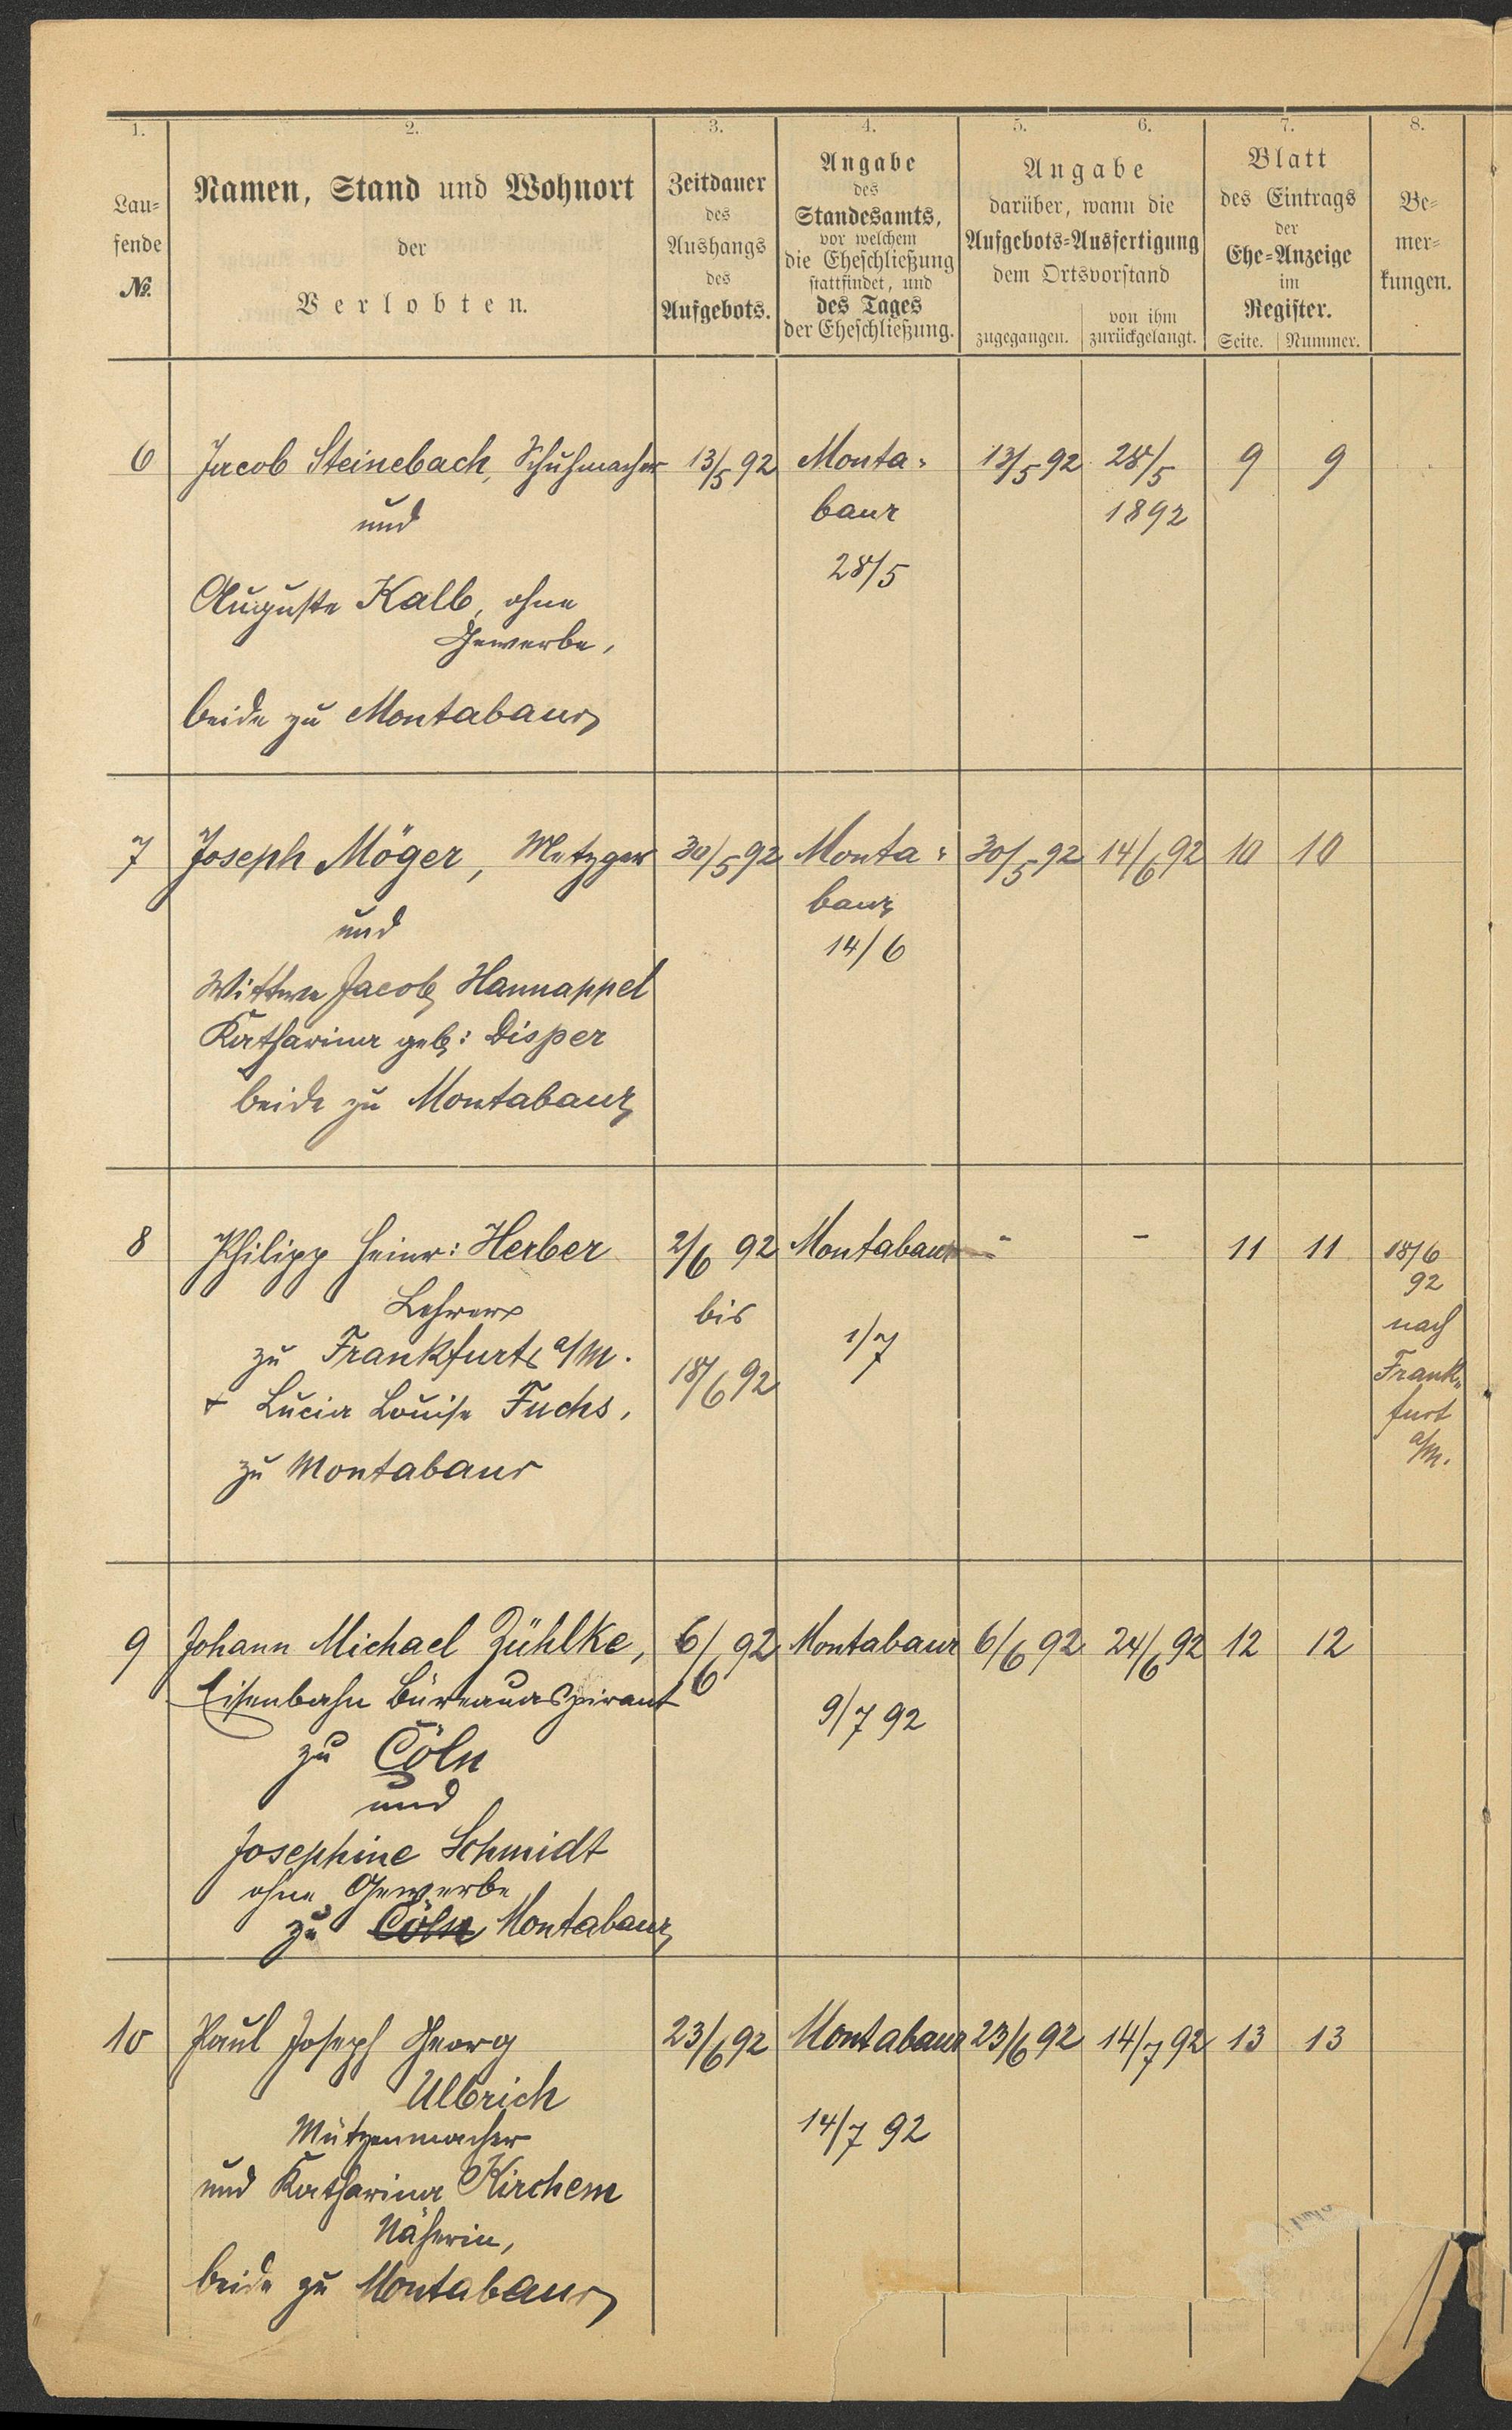 1.
2.
3.
4.
5.
6.
7.
8.
Lau-
fende
№.
Namen, Stand und Wohnort
der
Verlobten.
Zeitdauer
des
Aushangs
des
Aufgebots.
Angabe
des
Standesamts,
vor welchem
die Eheschließung
stattfindet, und
des Tages
der Eheschließung.
Angabe
darüber, wann die
Aufgebots-Ausfertigung
dem Ortsvorstand
zugegangen.
von ihm
zurückgelangt.
Blatt
des Eintrags
der
Ehe-Anzeige
im
Register.
Seite.
Nummer.
Be-
mer-
kungen.
6
Jacob Steinebach, Schuhmacher
und
Auguste Kalb, ohne
Gewerbe,
beide zu Montabaur
13/5 92
Monta-
baur
28/5
13/5 92
28/5
1892
9
9
7
Joseph Möger, Metzger
und
Wittwe Jacob Hannappel
Katharina geb: Disper
beide zu Montabaur
30/5 92
Monta-
baur
14/6
30/5 92
14/6 92
10
10
8
Philipp Heinr: Herber
Lehrer
zu Frankfurt a/M.
+ Lucia Louise Fuchs,
zu Montabaur
2/6 92
bis
18/6 92
Montabaur
1/7
-
-
11
11
18/6
92
nach
Frank-
furt
a/M.
9
Johann Michael Zühlke,
Eisenbahn Büreauaspirant
zu Cöln
und
Josephine Schmidt
ohne Gewerbe
zu Cöln Montabaur
6/6 92
Montabaur
9/7 92
6/6 92
24/6 92
12
12
10
Paul Joseph Georg
Ulbrich
Mützenmacher
und Katharina Kirchem
Näherin,
beide zu Montabaur
23/6 92
Montabaur
14/7 92
23/6 92
14/7 92
13
13